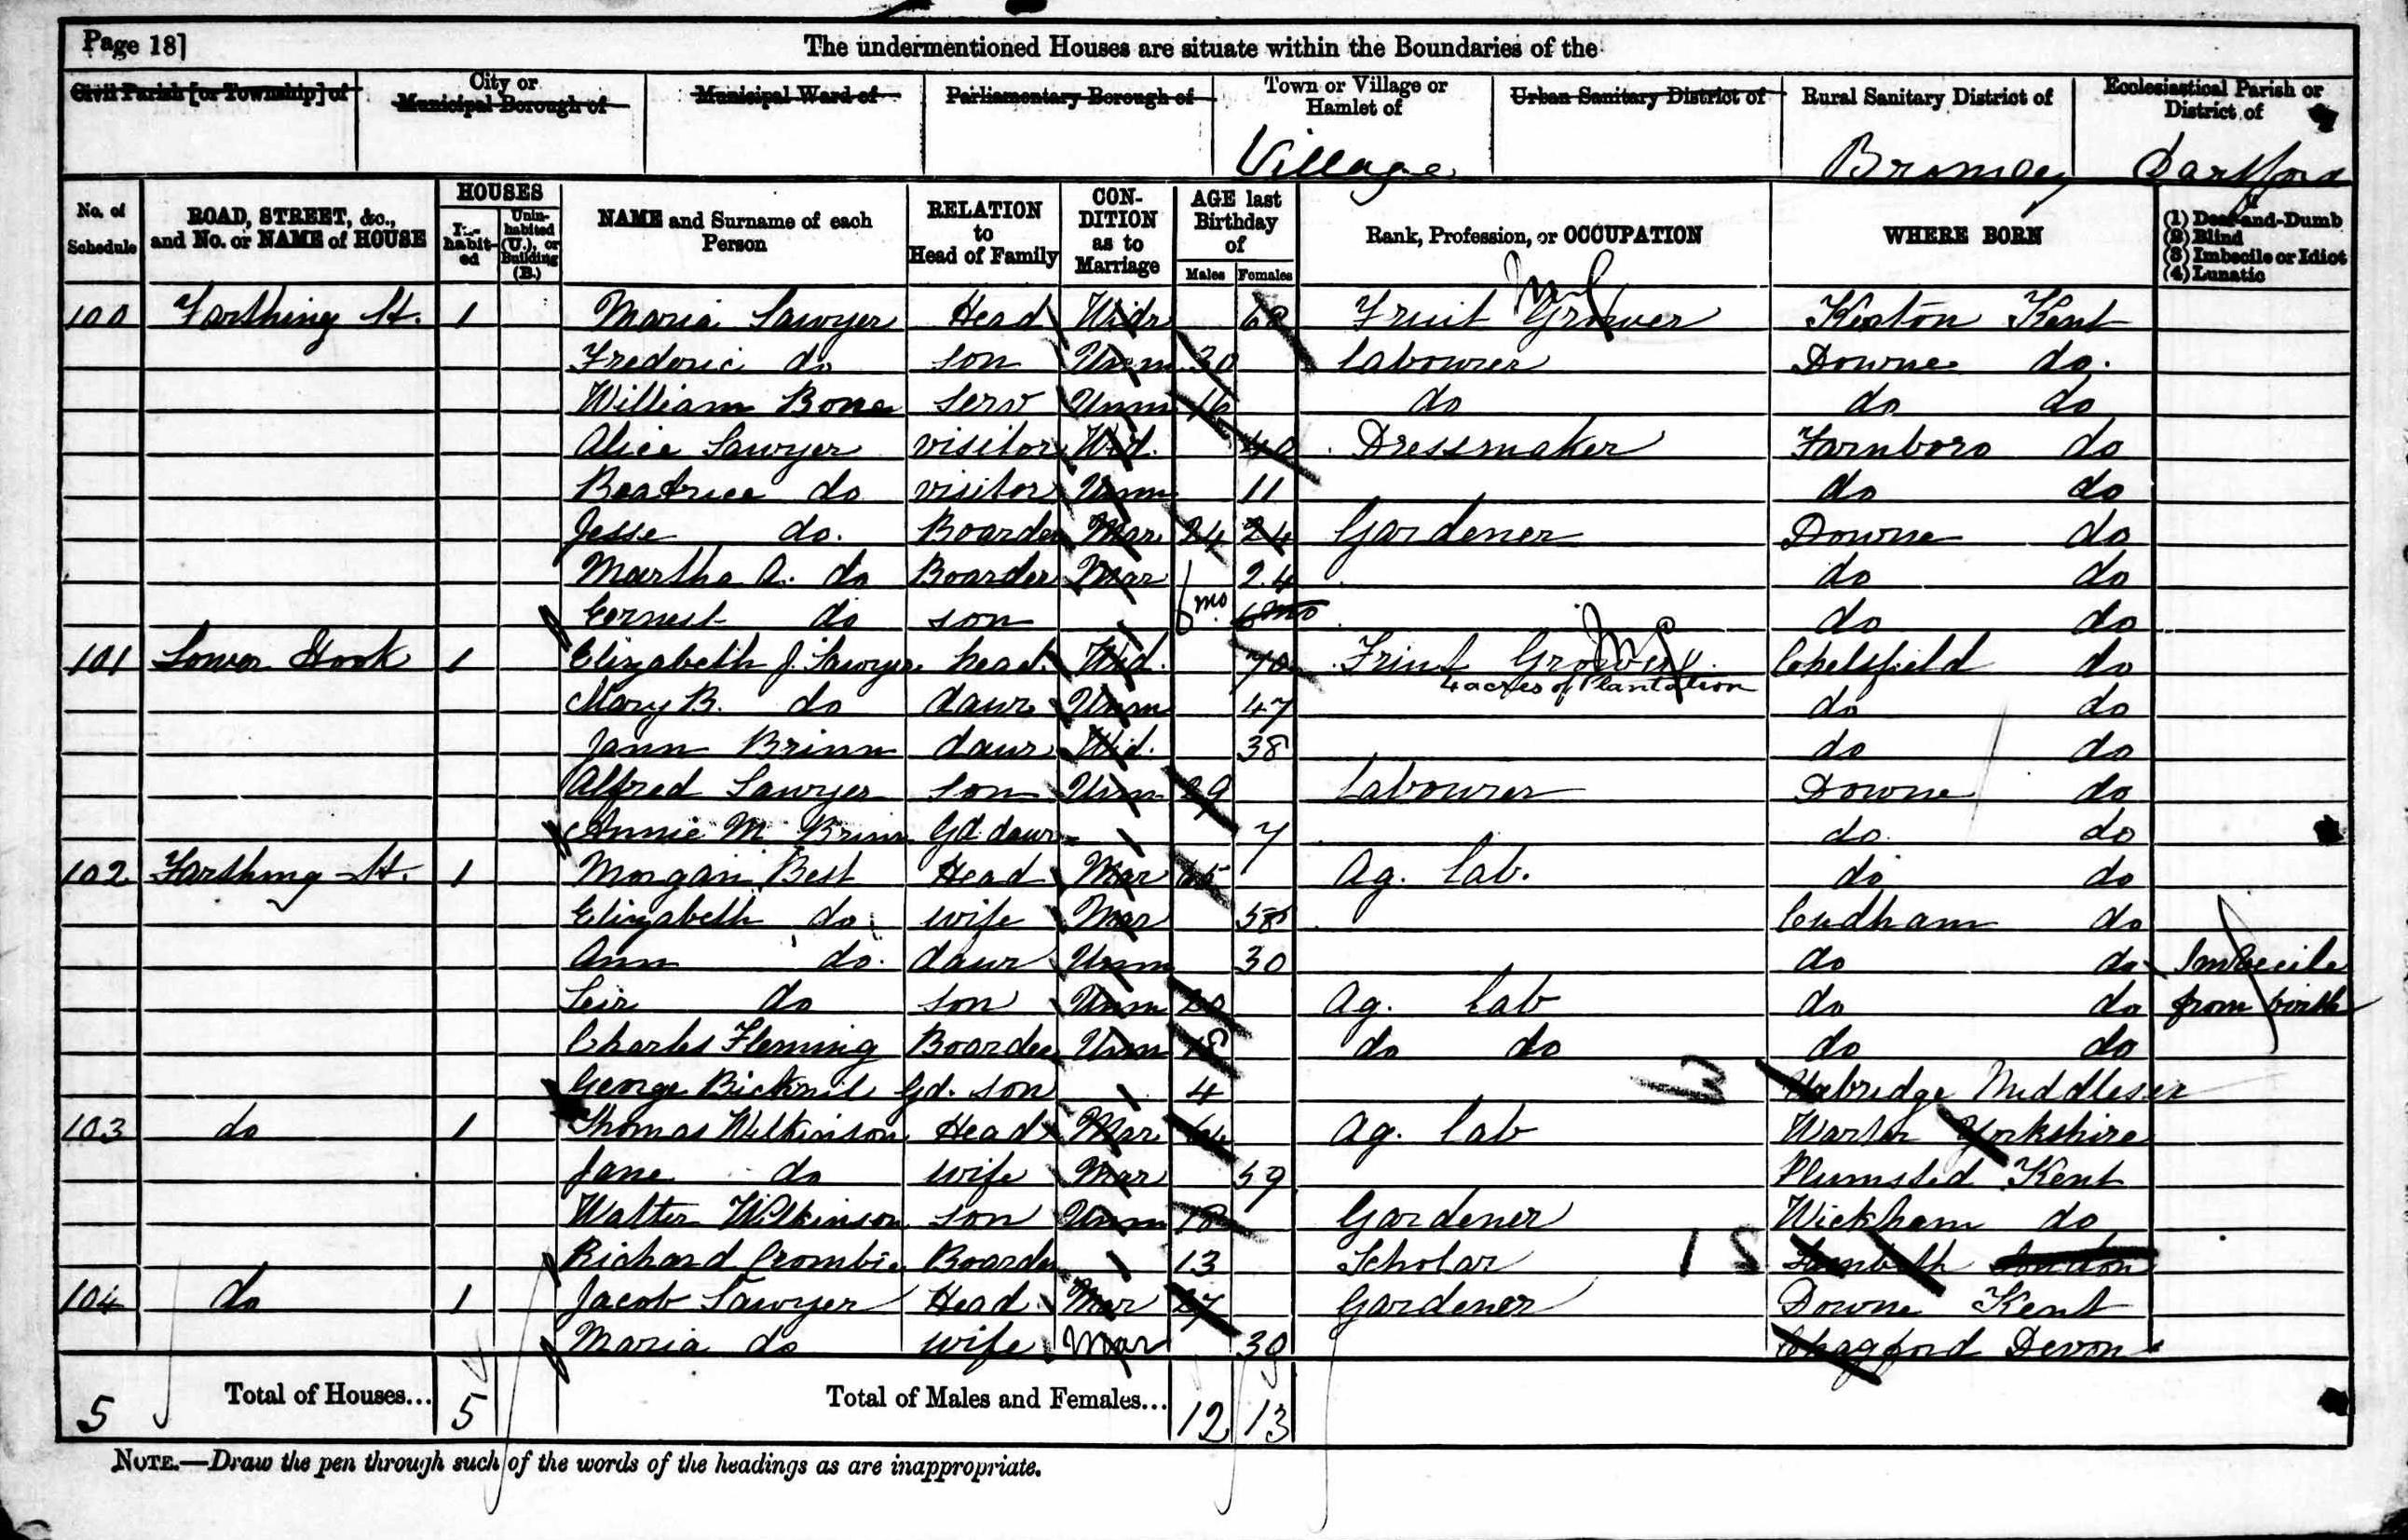 Page 18]
The undermentioned Houses are situate within the Boundaries of the
Civil Parish [or Township] of
City or Municipal Borough of
Municipal Ward of
Parliamentary Borough of
Town or Village or Hamlet of
Urban Sanitary District of
Rural Sanitary District of
Ecclesiastical Parish or District of
Village Bromley Dartford
No. of Schedule
ROAD, STREET, &c., and No. or NAME of HOUSE
HOUSES
In-habit-ed
Unin-habited (U.), or Building (B.)
NAME and Surname of each Person
RELATION to Head of Family
CON-DITION as to Marriage
AGE last Birthday of
Males Females
Rank, Profession, or OCCUPATION
WHERE BORN
(1) Deaf-and-Dumb
(2) Blind
(3) Imbecile or Idiot
(4) Lunatic
100 Farthing St. 1 Maria Sawyer Head Widr 68 Fruit Grower Keston Kent
Frederic do son Unm 30 Labourer Downe do.
William Bone serv Unm 16 do do do
Alice Sawyer visitor Wid. 40 Dressmaker Farnboro do
Beatrice do visitor Unm 11 do do
Jesse do. Boarder Mar 24 24 Gardener Downe do
Martha A. do Boarder Mar 24 do do
Ernest do son 6 mo 6 mo do do
101 Lower Hook 1 Elizabeth J. Sawyer head. Wid. 70 Fruit Grower Chelsfield do
4 acres of Plantation
Mary B. do daur Unm 47 do do
Jann Brinn daur Wid. 38 do do
Alfred Sawyer son Unm 29 Labourer Downe do
Annie M Brinn Gd daur 7 do do
102 Farthing St. 1 Morgan Best Head Mar 65 Ag. Lab. do do
Elizabeth do wife Mar 58 Cudham do
Ann do. daur Unm 30 do do Imbecile
do son Unm 20 Ag. Lab do do from birth
Charles Fleming Boarder Unm 18 do do do do
George Bicknil Gd. son 4 Uxbridge Middlesex
103 do 1 Thomas Wilkinson Head Mar 64 Ag. Lab Warter Yorkshire
Jane do wife Mar 59 Plumsted Kent
Walter Wilkinson son Unm 18 Gardener Wickham do
Richard Crombie Boarder 13 Scholar Lambeth London
104 do 1 Jacob Sawyer Head Mar 27 Gardener Downe Kent
Maria do wife Mar 30 Chagford Devon
5 Total of Houses... 5 Total of Males and Females... 12 13
NOTE.—Draw the pen through such of the words of the headings as are inappropriate.